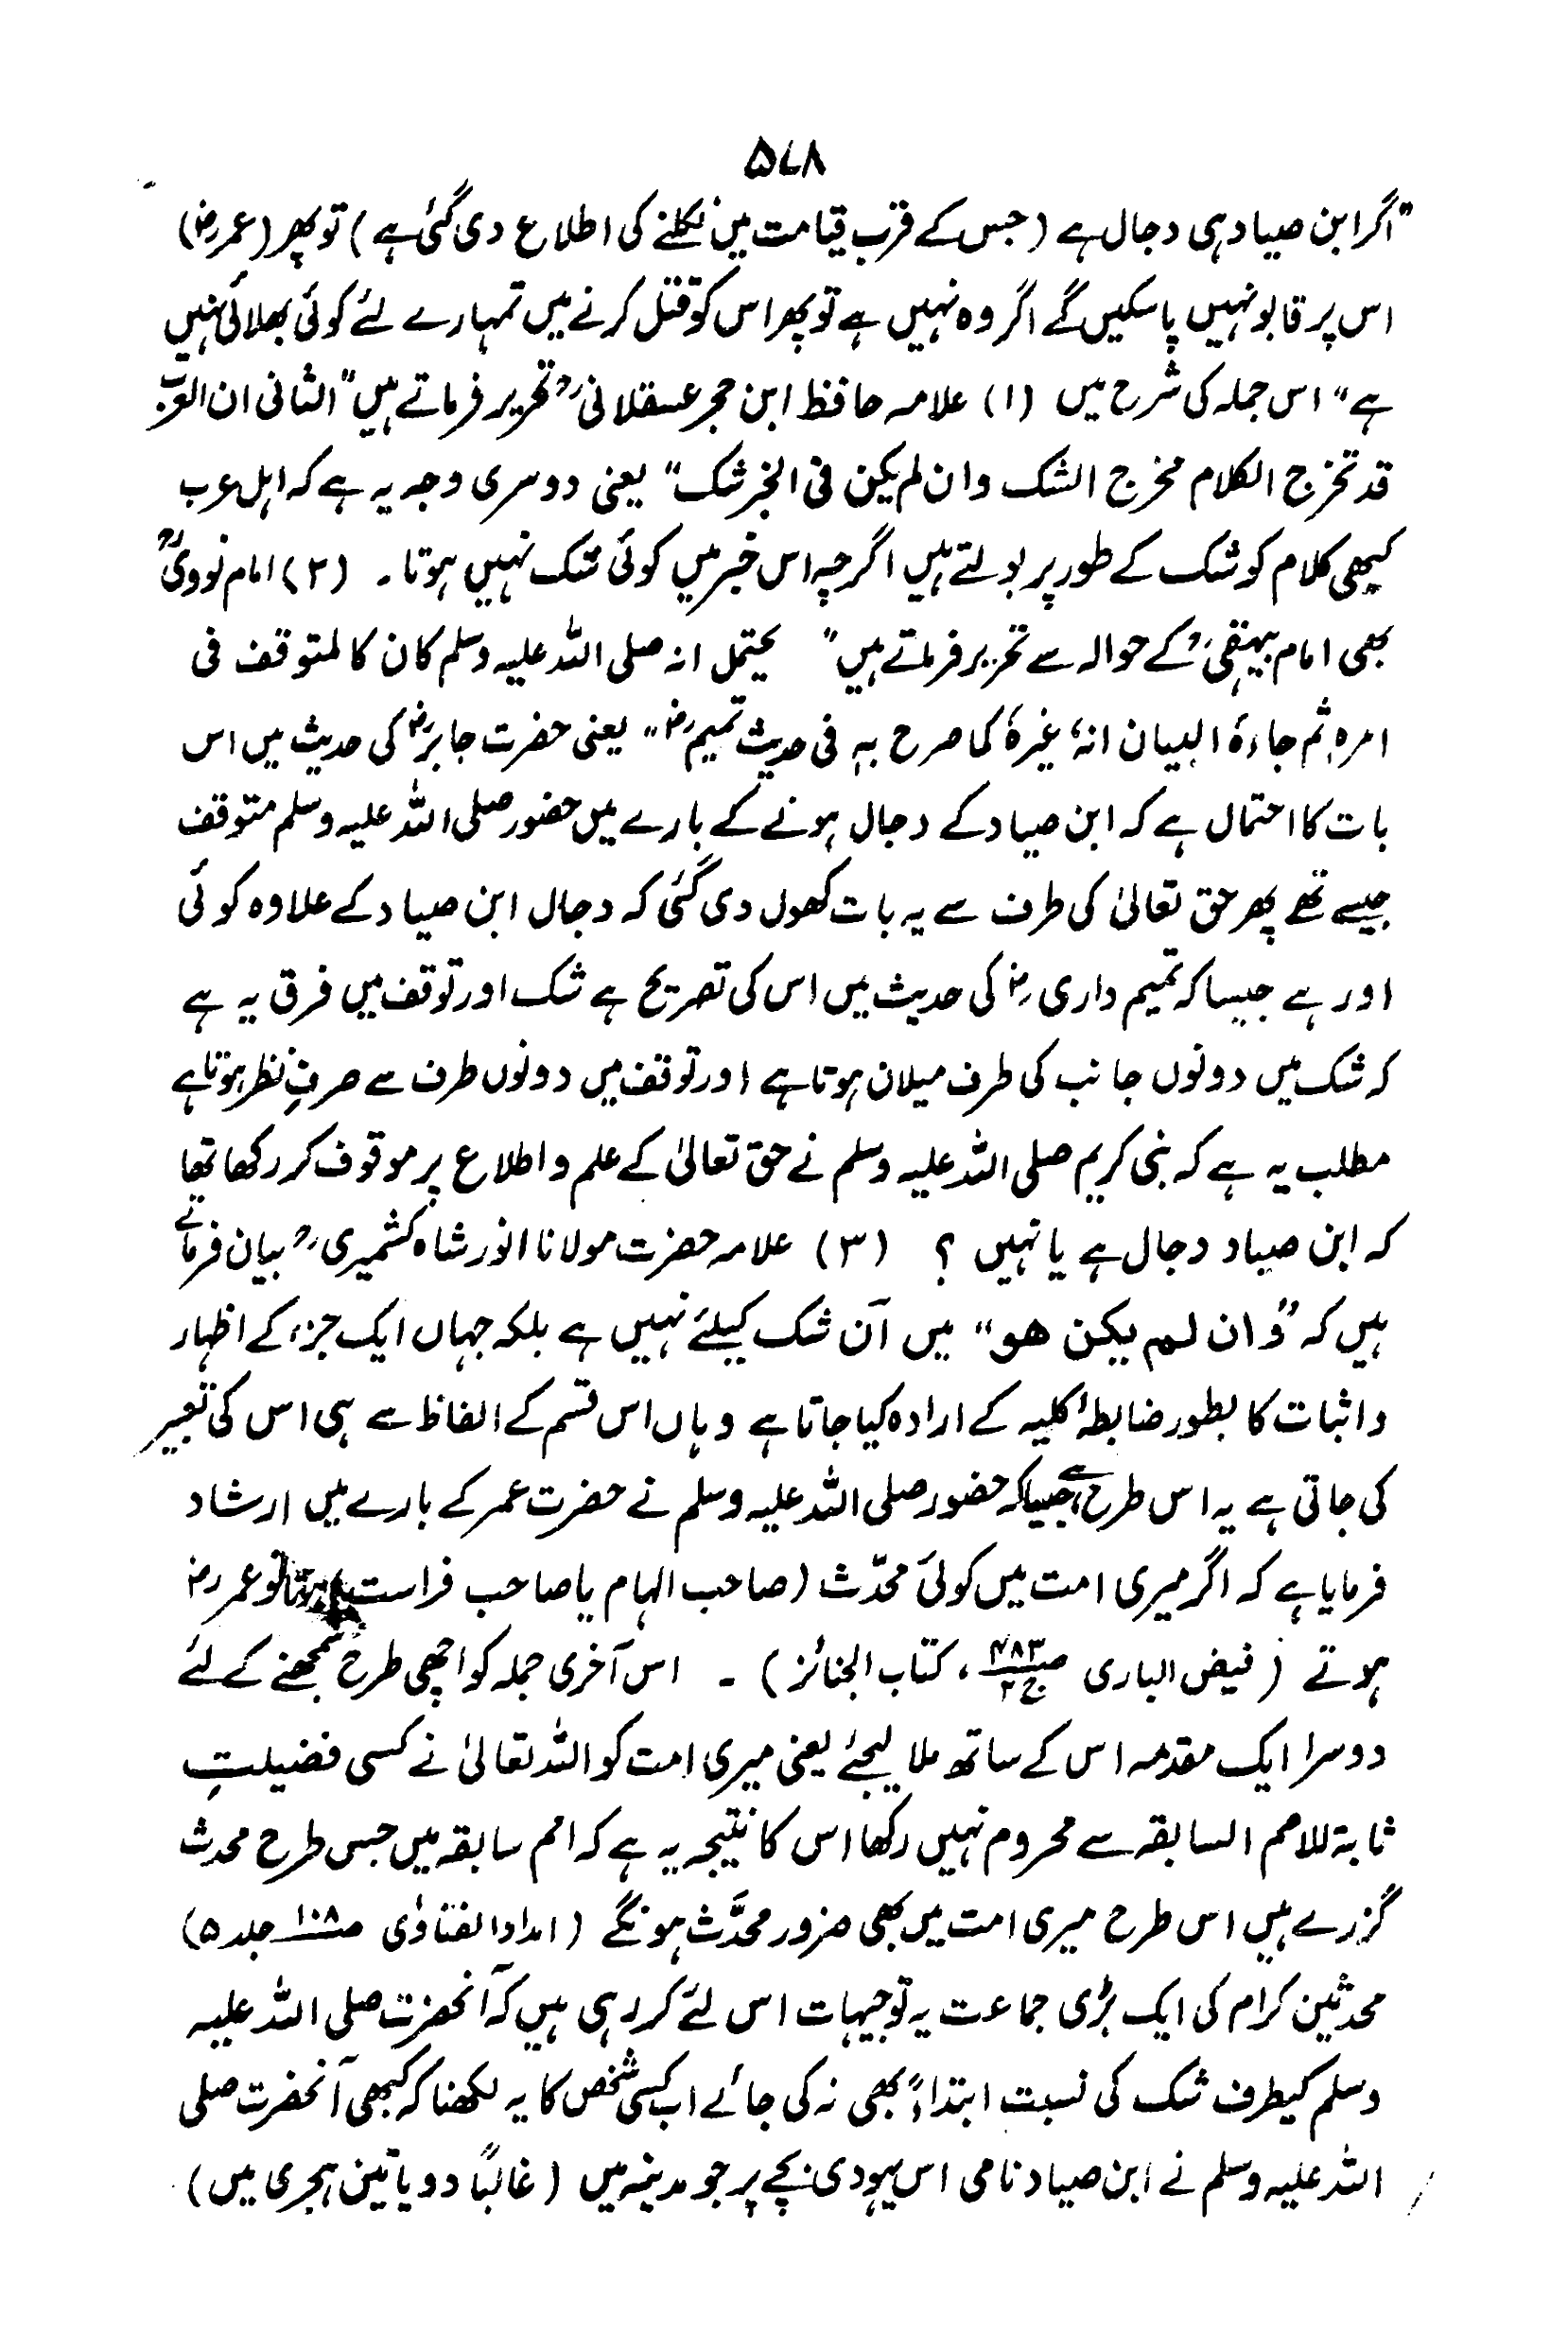 ۵۷۸
"اگر ابن صیاد ہی دجال ہے (جس کے قرب قیامت میں نکلنے کی اطلاع دی گئی ہے) تو پھر (عمر رضؓ)
اس پر قابو نہیں پاسکیں گے اگر وہ نہیں ہے تو پھر اس کو قتل کرنے میں تمہارے لئے کوئی بھلائی نہیں
ہے" اس جملہ کی شرح میں (۱) علامہ حافظ ابن حجر عسقلانیؒ تحریر فرماتے ہیں "الثانی ان العرب
قد تخرج الکلام مخرج الشک وان لم یکن فی الخبر شک" یعنی دوسری وجہ یہ ہے کہ اہل عرب
کبھی کلام کو شک کے طور پر بولتے ہیں اگرچہ اس خبر میں کوئی شک نہیں ہوتا۔ (۲) امام نوویؒ
بھی امام بیہقیؒ کے حوالہ سے تحریر فرماتے ہیں" یحتمل انہ صلی اللہ علیہ وسلم کان کالمتوقف فی
امرہ ثم جاءہٗ البیان انہٗ غیرہٗ کما صرح بہٖ فی حدیث تمیمؓ" یعنی حضرت جابرؓ کی حدیث میں اس
بات کا احتمال ہے کہ ابن صیاد کے دجال ہونے کے بارے میں حضور صلی اللہ علیہ وسلم متوقف
جیسے تھے پھر حق تعالیٰ کی طرف سے یہ بات کھول دی گئی کہ دجال ابن صیاد کے علاوہ کوئی
اور ہے جیسا کہ تمیم داریؓ کی حدیث میں اس کی تصریح ہے شک اور توقف میں فرق یہ ہے
کہ شک میں دونوں جانب کی طرف میلان ہوتا ہے اور توقف میں دونوں طرف سے صرفِ نظر ہوتا ہے
مطلب یہ ہے کہ نبی کریم صلی اللہ علیہ وسلم نے حق تعالیٰ کے علم و اطلاع پر موقوف کر رکھا تھا
کہ ابن صیاد دجال ہے یا نہیں ؟ (۳) علامہ حضرت مولانا انور شاہ کشمیریؒ بیان فرماتے
ہیں کہ "وان لم یکن ھو" میں آن شک کیلئے نہیں ہے بلکہ جہاں ایک جزء کے اظہار
واثبات کا بطور ضابطہٴ کلیہ کے ارادہ کیا جاتا ہے وہاں اس قسم کے الفاظ سے ہی اس کی تعبیر
کی جاتی ہے یہ اس طرح ہے جیسا کہ حضور صلی اللہ علیہ وسلم نے حضرت عمر کے بارے میں ارشاد
فرمایا ہے کہ اگر میری امت میں کوئی محدّث (صاحب الہام یا صاحب فراست) ہوتا تو عمرؓ
ہوتے (فیض الباری صـ۴۸۳ ج۲، کتاب الجنائز)۔ اس آخری جملہ کو اچھی طرح سمجھنے کے لئے
دوسرا ایک مقدمہ اس کے ساتھ ملا لیجئے یعنی میری امت کو اللہ تعالیٰ نے کسی فضیلتِ
ثابتۃ للامم السابقہ سے محروم نہیں رکھا اس کا نتیجہ یہ ہے کہ امم سابقہ میں جس طرح محدث
گزرے ہیں اس طرح میری امت میں بھی ضرور محدَّث ہونگے (امداد الفتاوٰی صـ۱۰۸ جلد ۵)
محدثین کرام کی ایک بڑی جماعت یہ توجیہات اس لئے کر رہی ہیں کہ آنحضرت صلی اللہ علیہ
وسلم کیطرف شک کی نسبت ابتداءً بھی نہ کی جائے اب کسی شخص کا یہ لکھنا کہ کبھی آنحضرت صلی
اللہ علیہ وسلم نے ابن صیاد نامی اس یہودی بچے پر جو مدینہ میں (غالبًا دو یا تین ہجری میں)